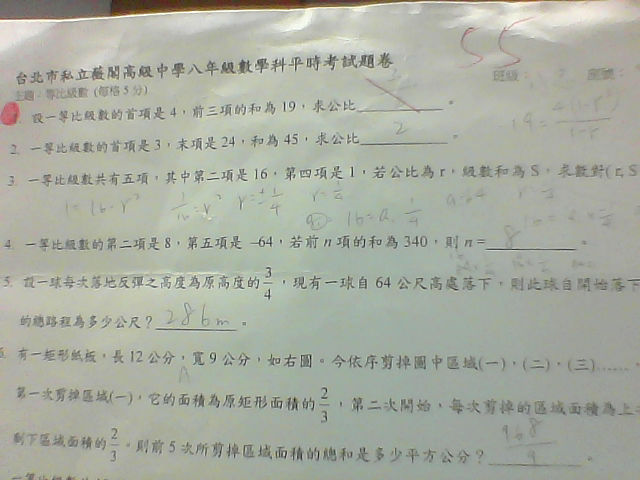 55
台北市私立薇閣高級中學八年級數學科平時考試題卷
主題：等比級數 (每格5分) 班級： 座號：
1. 設一等比級數的首項是 4，前三項的和為 19，求公比。
19=
2. 一等比級數的首項是 3，末項是 24，和為 45，求公比 2 。
3. 一等比級數共有五項，其中第二項是 16，第四項是 1，若公比為 r，級數和為 S，求數對( r, S
1=16·r² 1/16=r² r=±1/4 r=1/4
4. 一等比級數的第二項是 8，第五項是 −64，若前 n 項的和為 340，則 n= 8 。
5. 設一球每次落地反彈之高度為原高度的 3/4，現有一球自 64 公尺高處落下，則此球自開始落下
的總路程為多少公尺？ 286m 。
有一矩形紙板，長 12 公分，寬 9 公分，如右圖。今依序剪掉圖中區域(一)，(二)，(三)……
第一次剪掉區域(一)，它的面積為原矩形面積的 2/3，第二次開始，每次剪掉的區域面積為上
剩下區域面積的 2/3。則前 5 次所剪掉區域面積的總和是多少平方公分？ 968/9 。